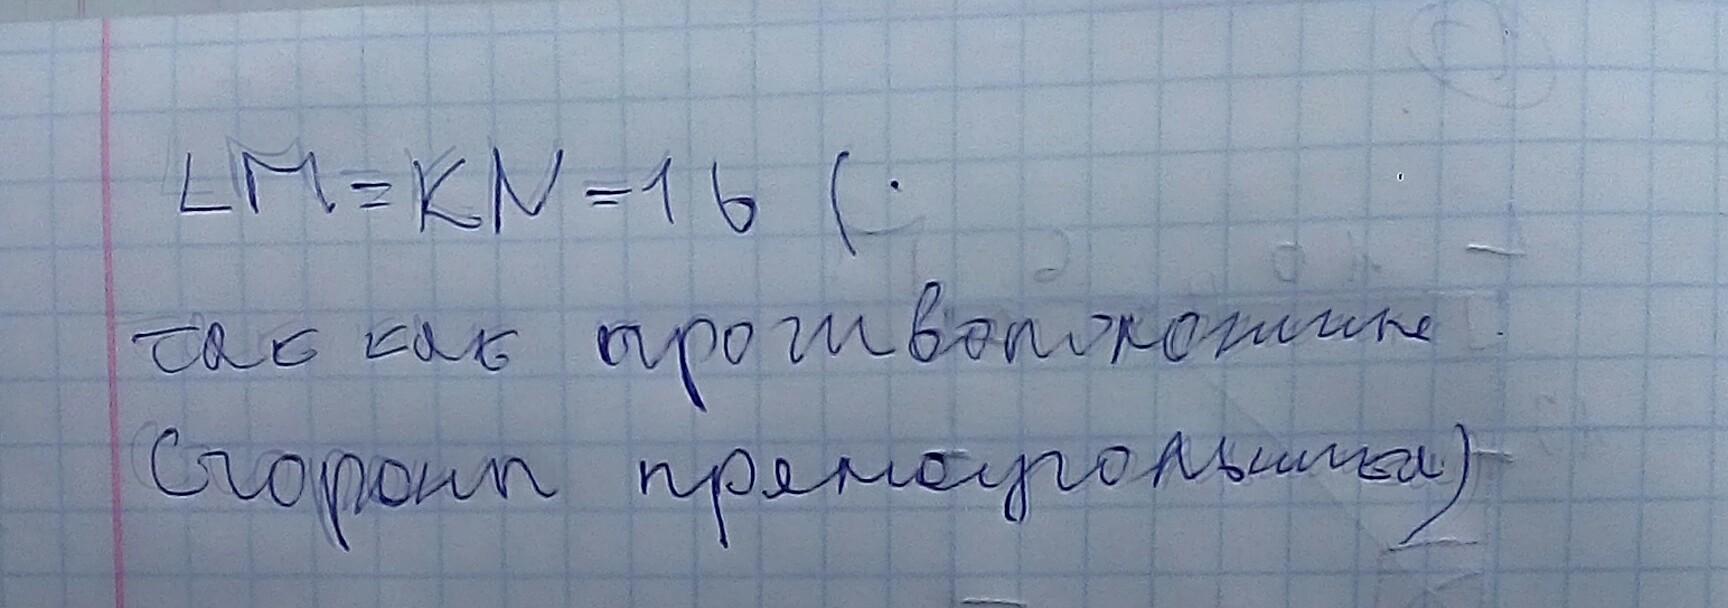 LM=KN=16 (
так как противоположные
стороны прямоугольника)